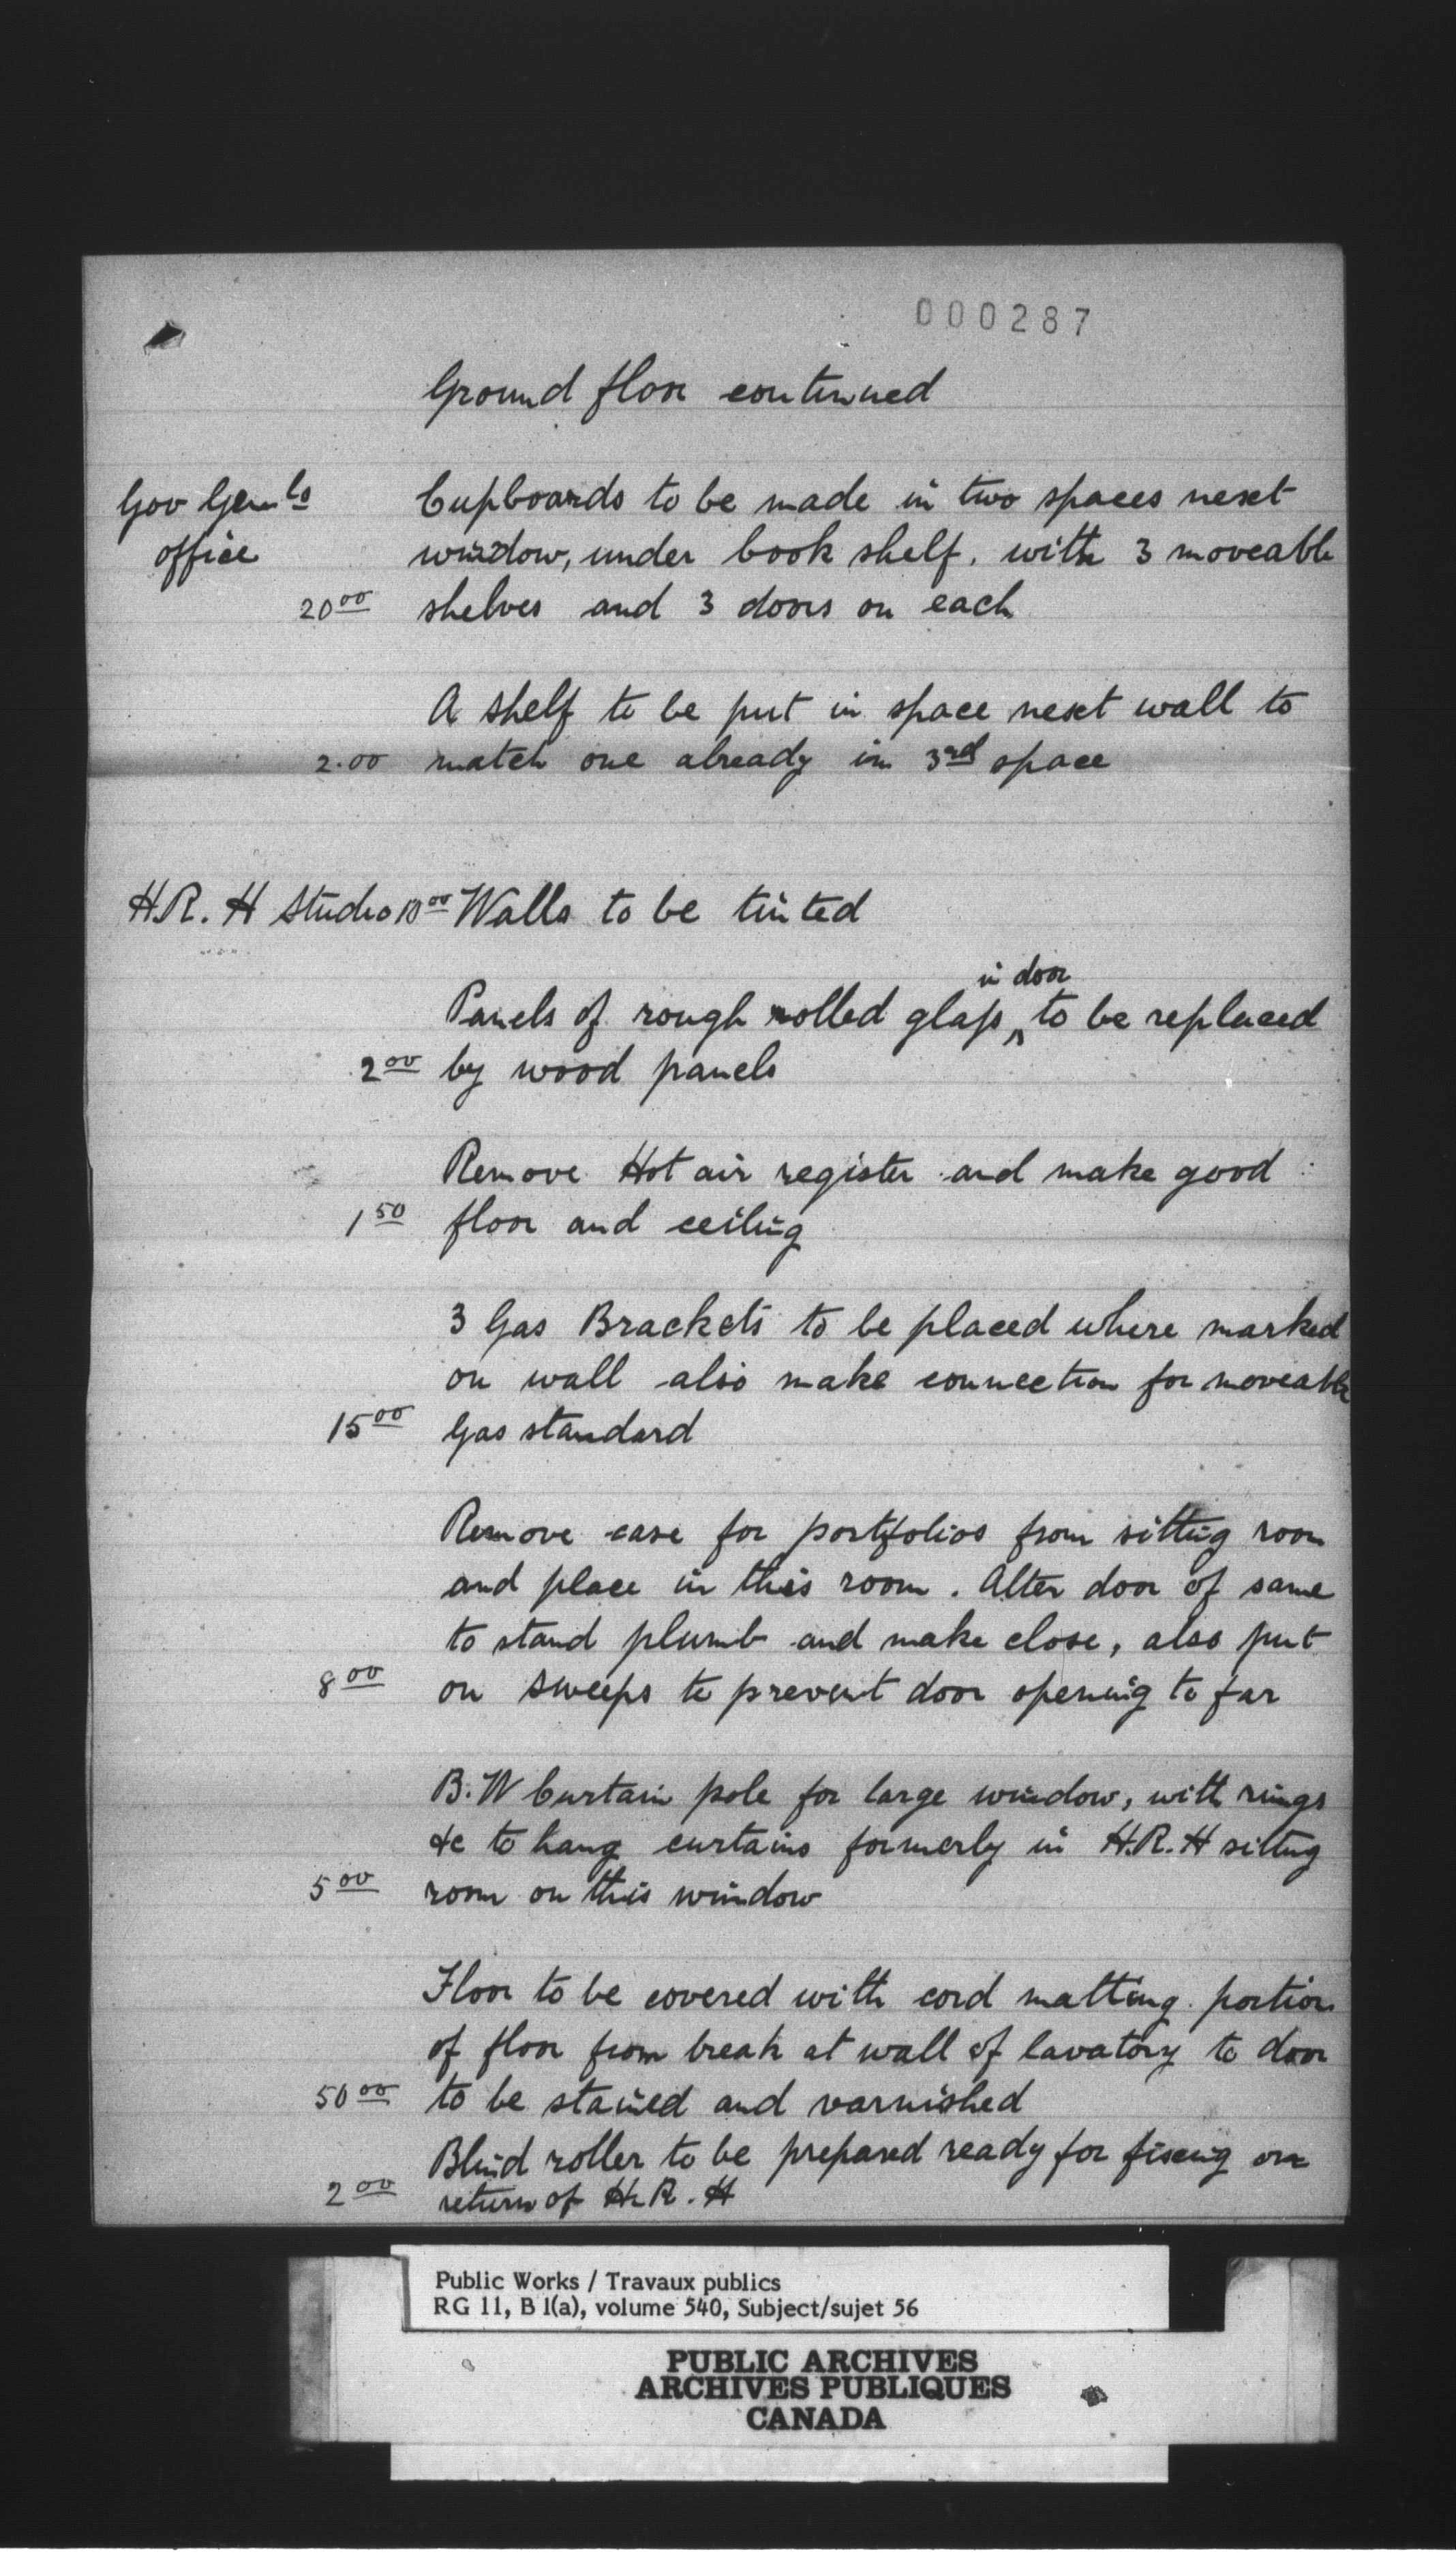 000287
Ground floor continued
Gov Genls Cupboards to be made in two spaces next
office window, under book shelf. with 3 moveable
20 00 shelves and 3 doors on each
A shelf to be put in space next wall to
2.00 match one already in 3rd space
H.R. H Studio 10 00 Walls to be tinted
in door
Panels of rough rolled glass ^ to be replaced
2 00 by wood panels
Remove Hot air register and make good
1 50 floor and ceiling
3 Gas Brackets to be placed where marked
on wall also make connection for moveable
15 00 Gas standard
Remove case for portfolios from sitting room
and place in this room. Alter door of same
to stand plumb and make close, also put
8 00 on sweeps to prevent door opening to far
B.W Curtain pole for large window, with rings
&c to hang curtains formerly in H.R.H sitting
5 00 room on this window
Floor to be covered with cord matting portion
of floor from break at wall of lavatory to door
50 00 to be stained and varnished
Blind roller to be prepared ready for fixing on
2 00 return of H.R.H
Public Works / Travaux publics
RG 11, B 1(a), volume 540, Subject/sujet 56
PUBLIC ARCHIVES
ARCHIVES PUBLIQUES
CANADA